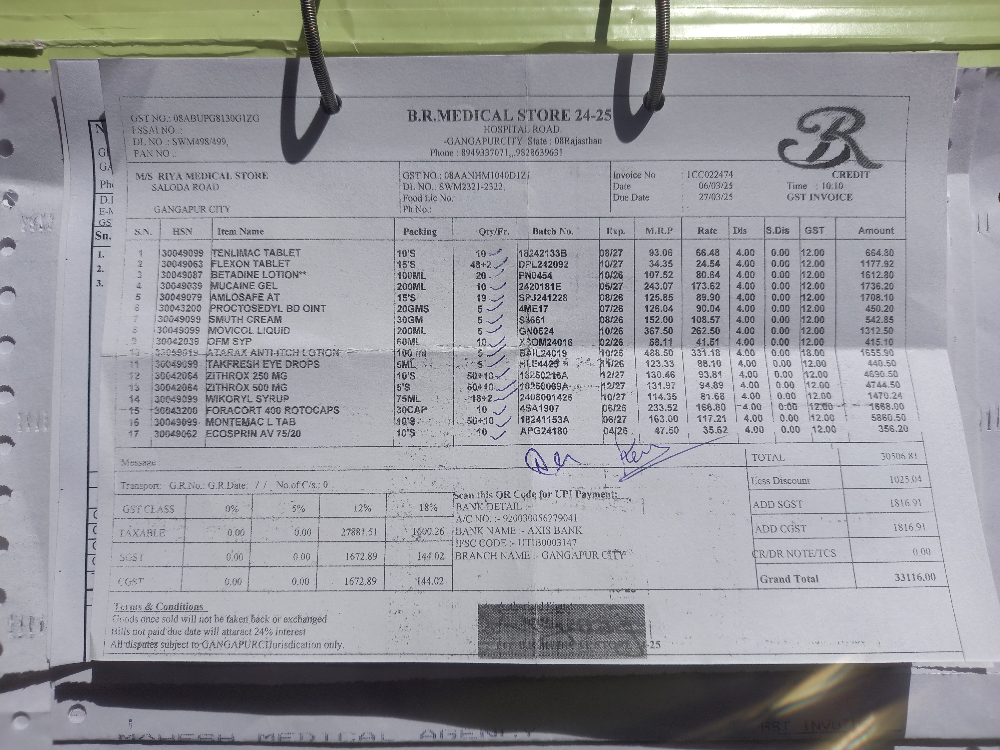 GST NO.: 08ABUPG8130G1ZG
FSSAI NO.:
DL NO. : SWM498/499,
PAN NO.
B.R.MEDICAL STORE 24-25
HOSPITAL ROAD
-GANGAPURCITY State : 08Rajasthan
Phone : 8949337071,,,9828639631
BR
M/S RIYA MEDICAL STORE
SALODA ROAD
GANGAPUR CITY
GST NO.: 08AANHM1040D1Z
DL NO.: SWM2321-2322,
Food Lic No.
Ph.No.:
Invoice No : 1CC022474
Date 06/03/25
Due Date 27/03/25
CREDIT
Time : 10:10
GST INVOICE
S.N. HSN Item Name Packing Qty/Fr. Batch No. Exp. M.R.P Rate Dis S.Dis GST Amount
1 30049099 TENLIMAC TABLET 10'S 10 18242133B 08/27 93.06 66.48 4.00 0.00 12.00 664.80
2 30049063 FLEXON TABLET 15'S 48+2 DPL242092 10/27 34.35 24.54 4.00 0.00 12.00 1177.92
3 30049087 BETADINE LOTION** 100ML 20 PN0454 10/26 107.52 80.64 4.00 0.00 12.00 1612.80
4 30049039 MUCAINE GEL 200ML 10 2420181E 05/27 243.07 173.62 4.00 0.00 12.00 1736.20
5 30049079 AMLOSAFE AT 15'S 19 SPJ241228 08/26 125.85 89.90 4.00 0.00 12.00 1708.10
6 30043200 PROCTOSEDYL BD OINT 20GMS 5 4ME17 07/26 126.04 90.04 4.00 0.00 12.00 450.20
7 30049099 SMUTH CREAM 30GM 5 S3661 08/26 152.00 108.57 4.00 0.00 12.00 542.85
8 30049099 MOVICOL LIQUID 200ML 5 GN0524 10/26 367.50 262.50 4.00 0.00 12.00 1312.50
9 30042039 OFM SYP 60ML 10 02/26 58.11 41.51 4.00 0.00 12.00 415.10
10 ATARAX ANTI-ITCH LOTION 100 ml 5 BAL24019 10/26 488.50 331.18 4.00 0.00 18.00 1655.90
11 30049099 TAKFRESH EYE DROPS 5ML 5 123.33 88.10 4.00 0.00 12.00 440.50
12 30042064 ZITHROX 250 MG 10'S 50+10 18250216A 12/27 93.81 4.00 0.00 12.00 4690.50
13 30042064 ZITHROX 500 MG 5'S 50+10 12/27 131.97 94.89 4.00 0.00 12.00 4744.50
14 30049099 WIKORYL SYRUP 75ML 18+2 2408001426 10/27 114.35 81.68 4.00 0.00 12.00 1470.24
15 30043200 FORACORT 400 ROTOCAPS 30CAP 10 4SA1907 06/26 233.52 166.80 4.00 0.00 12.00 1668.00
16 30049099 MONTEMAC L TAB 10'S 50+10 18241153A 06/27 163.00 117.21 4.00 0.00 12.00 5860.50
17 30049062 ECOSPRIN AV 75/20 10'S 10 APG24180 04/26 47.50 35.62 4.00 0.00 12.00 356.20
Message :
Transport: G.R.No.: G.R.Date: / / No.of C/s.: 0
TOTAL 30506.81
Less Discount 1025.04
ADD SGST 1816.91
ADD CGST 1816.91
CR/DR NOTE/TCS 0.00
Grand Total 33116.00
GST CLASS 0% 5% 12% 18%
TAXABLE 0.00 0.00 27881.51 1600.26
SGST 0.00 0.00 1672.89 144.02
CGST 0.00 0.00 1672.89 144.02
Scan this QR Code for UPI Payment:
BANK DETAIL :-
A/C NO. :- 920030056279041
BANK NAME :- AXIS BANK
IFSC CODE :- UTIB0003147
BRANCH NAME :- GANGAPUR CITY
Terms & Conditions
Goods once sold will not be taken back or exchanged
Bills not paid due date will attaract 24% interest
All disputes subject to GANGAPURCIJurisdication only.
MAHESH MEDICAL AGENCY